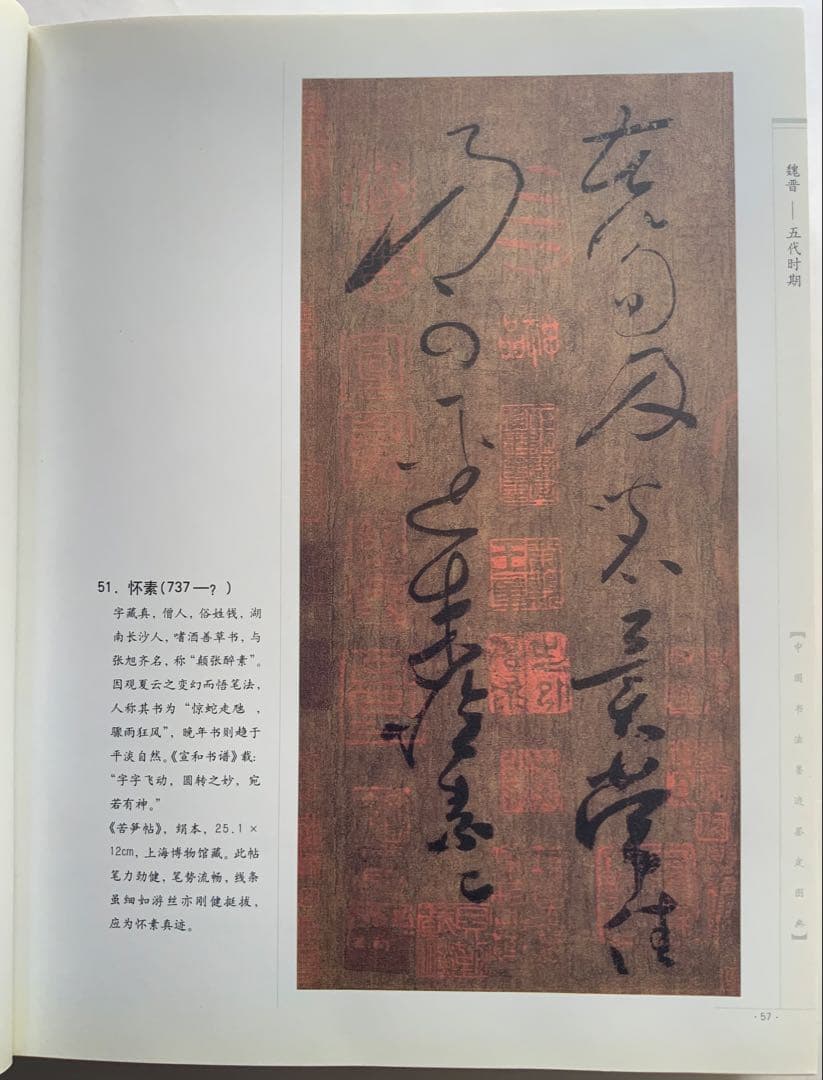 苦笋及茗異常佳
乃可逕來懷素上
51. 怀素(737—?)
字藏真，僧人，俗姓钱，湖
南长沙人，嗜酒善草书，与
张旭齐名，称“颠张醉素”。
因观夏云之变幻而悟笔法，
人称其书为“惊蛇走虺，
骤雨狂风”，晚年书则趋于
平淡自然。《宣和书谱》载：
“字字飞动，圆转之妙，宛
若有神。”
《苦笋帖》，绢本，25.1×
12cm，上海博物馆藏。此帖
笔力劲健，笔势流畅，线条
虽细如游丝亦刚健挺拔，
应为怀素真迹。
魏晋——五代时期
【中国书法墨迹鉴定图典】
·57·